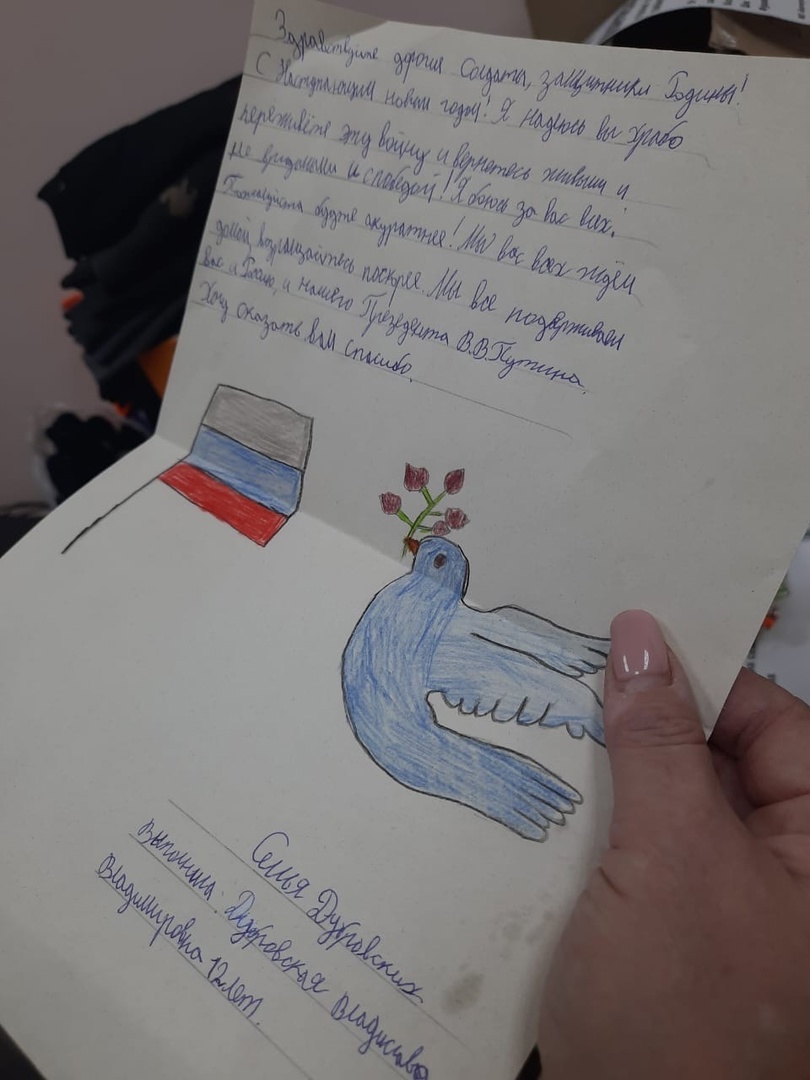 Здравствуйте дорогие солдаты, защитники Родины!
С Наступающим новым годом! Я надеюсь вы храбо
переживёте эту войну и вернетесь живыми и
не вридомами и с победой! Я боюсь за вас всех.
Пожалуйста будьте акуратнее! Мы вас всех ждём
домой возращайтесь поскрее. Мы все подерживаем
вас и Росию, и нашего Презедента В.В.Путина.
Хочу сказать вам спосибо.
Семья Дубровских
Выполнила: Дубровская Владислава
Владимировна 12 лет.